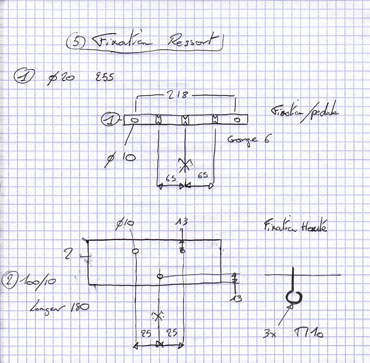 ⑤ Fixation Ressort
① ø 20 255
218
① Fixation/pedale
Gorge 6
ø 10
65 65
ø10 13 Fixation Haute
2
② 100/10
Longeur 180 13
25 25 3x